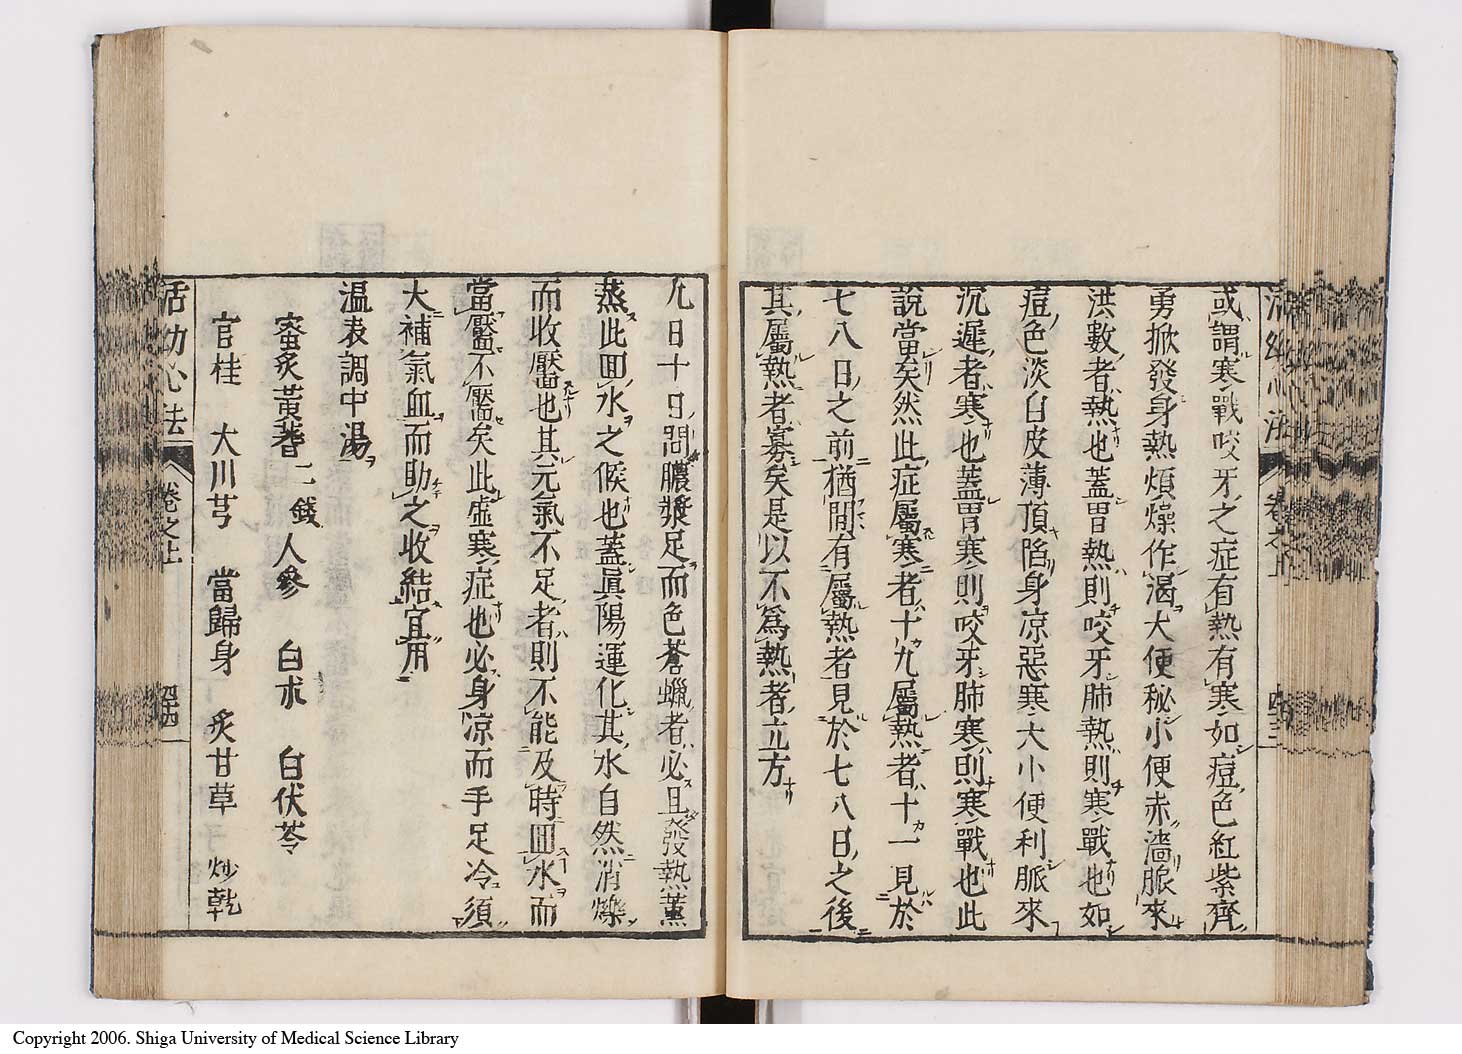 或謂寒戰咬牙之症有熱有寒如痘色紅紫齊
勇掀發身熱煩燥作渴大便秘小便赤濇脈來
洪數者熱也蓋胃熱則咬牙肺熱則寒戰也如
痘色淡白皮薄頂陷身凉惡寒大小便利脈來
沉遲者寒也蓋胃寒則咬牙肺寒則寒戰也此
說當矣然此症屬寒者十九屬熱者十一見於
七八日之前猶間有屬熱者見於七八日之後
其屬熱者寡矣是以不爲熱者立方
九日十日間膿漿足而色蒼蠟者必且發熱薰
蒸此回水之候也蓋眞陽運化其水自然消爍
而收靨也其元氣不足者則不能及時回水而
當靨不靨矣此虛寒症也必身凉而手足冷須
大補氣血而助之收結宜用
温表調中湯
蜜炙黃芪 二錢 人參 白朮 白伏苓
官桂 大川芎 當歸身 炙甘草 炒乾
活幼心法 卷之上 四十四
Copyright 2006. Shiga University of Medical Science Library